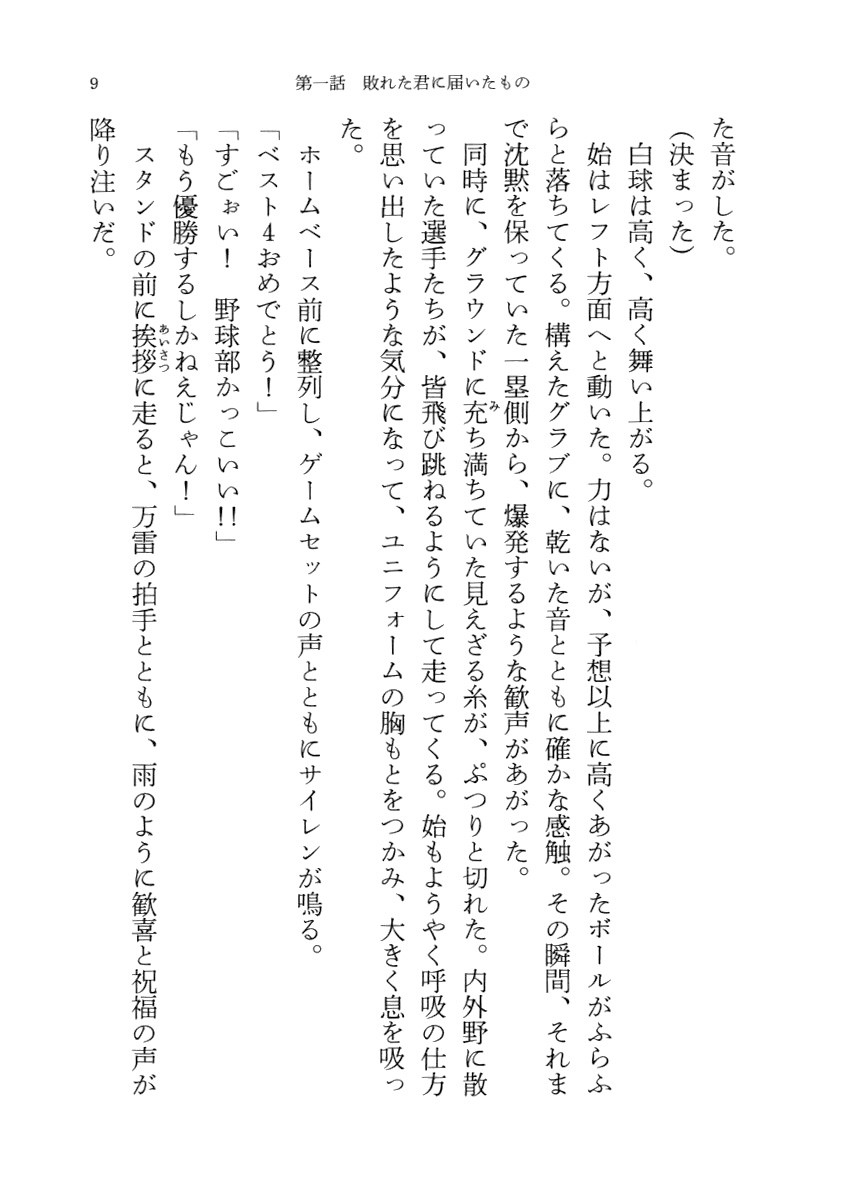 9
第一話　敗れた君に届いたもの
た音がした。
(決まった)
　白球は高く、高く舞い上がる。
　始はレフト方面へと動いた。力はないが、予想以上に高くあがったボールがふらふ
らと落ちてくる。構えたグラブに、乾いた音とともに確かな感触。その瞬間、それま
で沈黙を保っていた一塁側から、爆発するような歓声があがった。
　同時に、グラウンドに充ち満ちていた見えざる糸が、ぷつりと切れた。内外野に散
っていた選手たちが、皆飛び跳ねるようにして走ってくる。始もようやく呼吸の仕方
を思い出したような気分になって、ユニフォームの胸もとをつかみ、大きく息を吸っ
た。
　ホームベース前に整列し、ゲームセットの声とともにサイレンが鳴る。
「ベスト4おめでとう！」
「すごぉい！　野球部かっこいい!!」
「もう優勝するしかねえじゃん！」
　スタンドの前に挨拶に走ると、万雷の拍手とともに、雨のように歓喜と祝福の声が
降り注いだ。
み
あいさつ